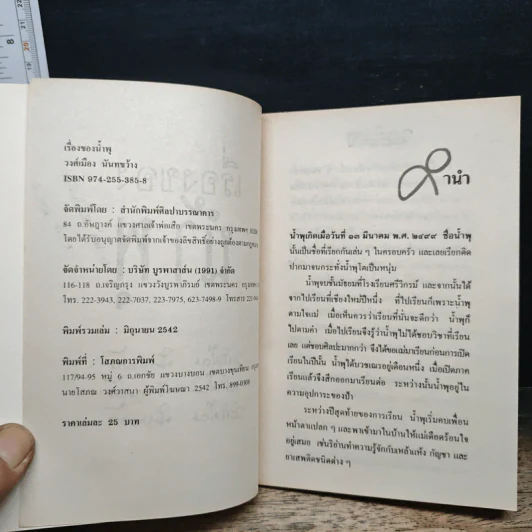 เรื่องของน้ำพุ
วงศ์เมือง นันทขว้าง
ISBN 974-255-385-8
จัดพิมพ์โดย : สำนักพิมพ์ศิลปาบรรณาคาร
84 ถ.อัษฎางค์ แขวงศาลเจ้าพ่อเสือ เขตพระนคร กรุงเทพฯ
โดยได้รับอนุญาตจัดพิมพ์จากเจ้าของลิขสิทธิ์อย่างถูกต้องตามกฎหมาย
จัดจำหน่ายโดย : บริษัท บูรพาสาส์น (1991) จำกัด
116-118 ถ.เจริญกรุง แขวงวังบูรพาภิรมย์ เขตพระนคร กรุงเทพฯ
โทร. 222-3943, 222-7037, 223-7975, 623-7498-9 โทรสาร
พิมพ์รวมเล่ม : มิถุนายน 2542
พิมพ์ที่ : โสภณการพิมพ์
117/94-95 หมู่ 6 ถ.เอกชัย แขวงบางบอน เขตบางขุนเทียน
นายโสภณ วงศ์วาสนา ผู้พิมพ์โฆษณา 2542 โทร.
ราคาเล่มละ 25 บาท
คำนำ
น้ำพุเกิดเมื่อวันที่ ๑๓ มีนาคม พ.ศ. ๒๔๙๙ ชื่อน้ำพุ
นั้นเป็นชื่อที่เรียกกันเล่น ๆ ในครอบครัว และเลยเรียกติด
ปากมาจนกระทั่งน้ำพุโตเป็นหนุ่ม
น้ำพุจบชั้นมัธยมที่โรงเรียนศรีวิกรม์ และจากนั้นได้
จากไปเรียนที่เชียงใหม่ปีหนึ่ง ที่ไปเรียนก็เพราะน้ำพุ
ตามใจแม่ เมื่อเห็นควรว่าเรียนที่นั่นจะดีกว่า น้ำพุก็
ไปตามคำ เมื่อไปเรียนจึงรู้ว่าน้ำพุไม่ได้ชอบวิชาที่เรียน
เลย แต่ชอบศิลปะมากกว่า จึงได้ขอแม่มาเรียนก่อนการเปิด
เรียนในปีนั้น น้ำพุได้บวชเณรอยู่เดือนหนึ่ง เมื่อเปิดภาค
เรียนแล้วจึงสึกออกมาเรียนต่อ ระหว่างนั้นน้ำพุอยู่ใน
ความอุปการะของป้า
ระหว่างปีสุดท้ายของการเรียน น้ำพุเริ่มคบเพื่อน
หน้าตาแปลก ๆ และพาเข้ามาในบ้านให้แม่เดือดร้อนใจ
อยู่เสมอ เช่นริอ่านทำความรู้จักกับเหล้าแห้ง กัญชา และ
ยาเสพติดชนิดต่าง ๆ